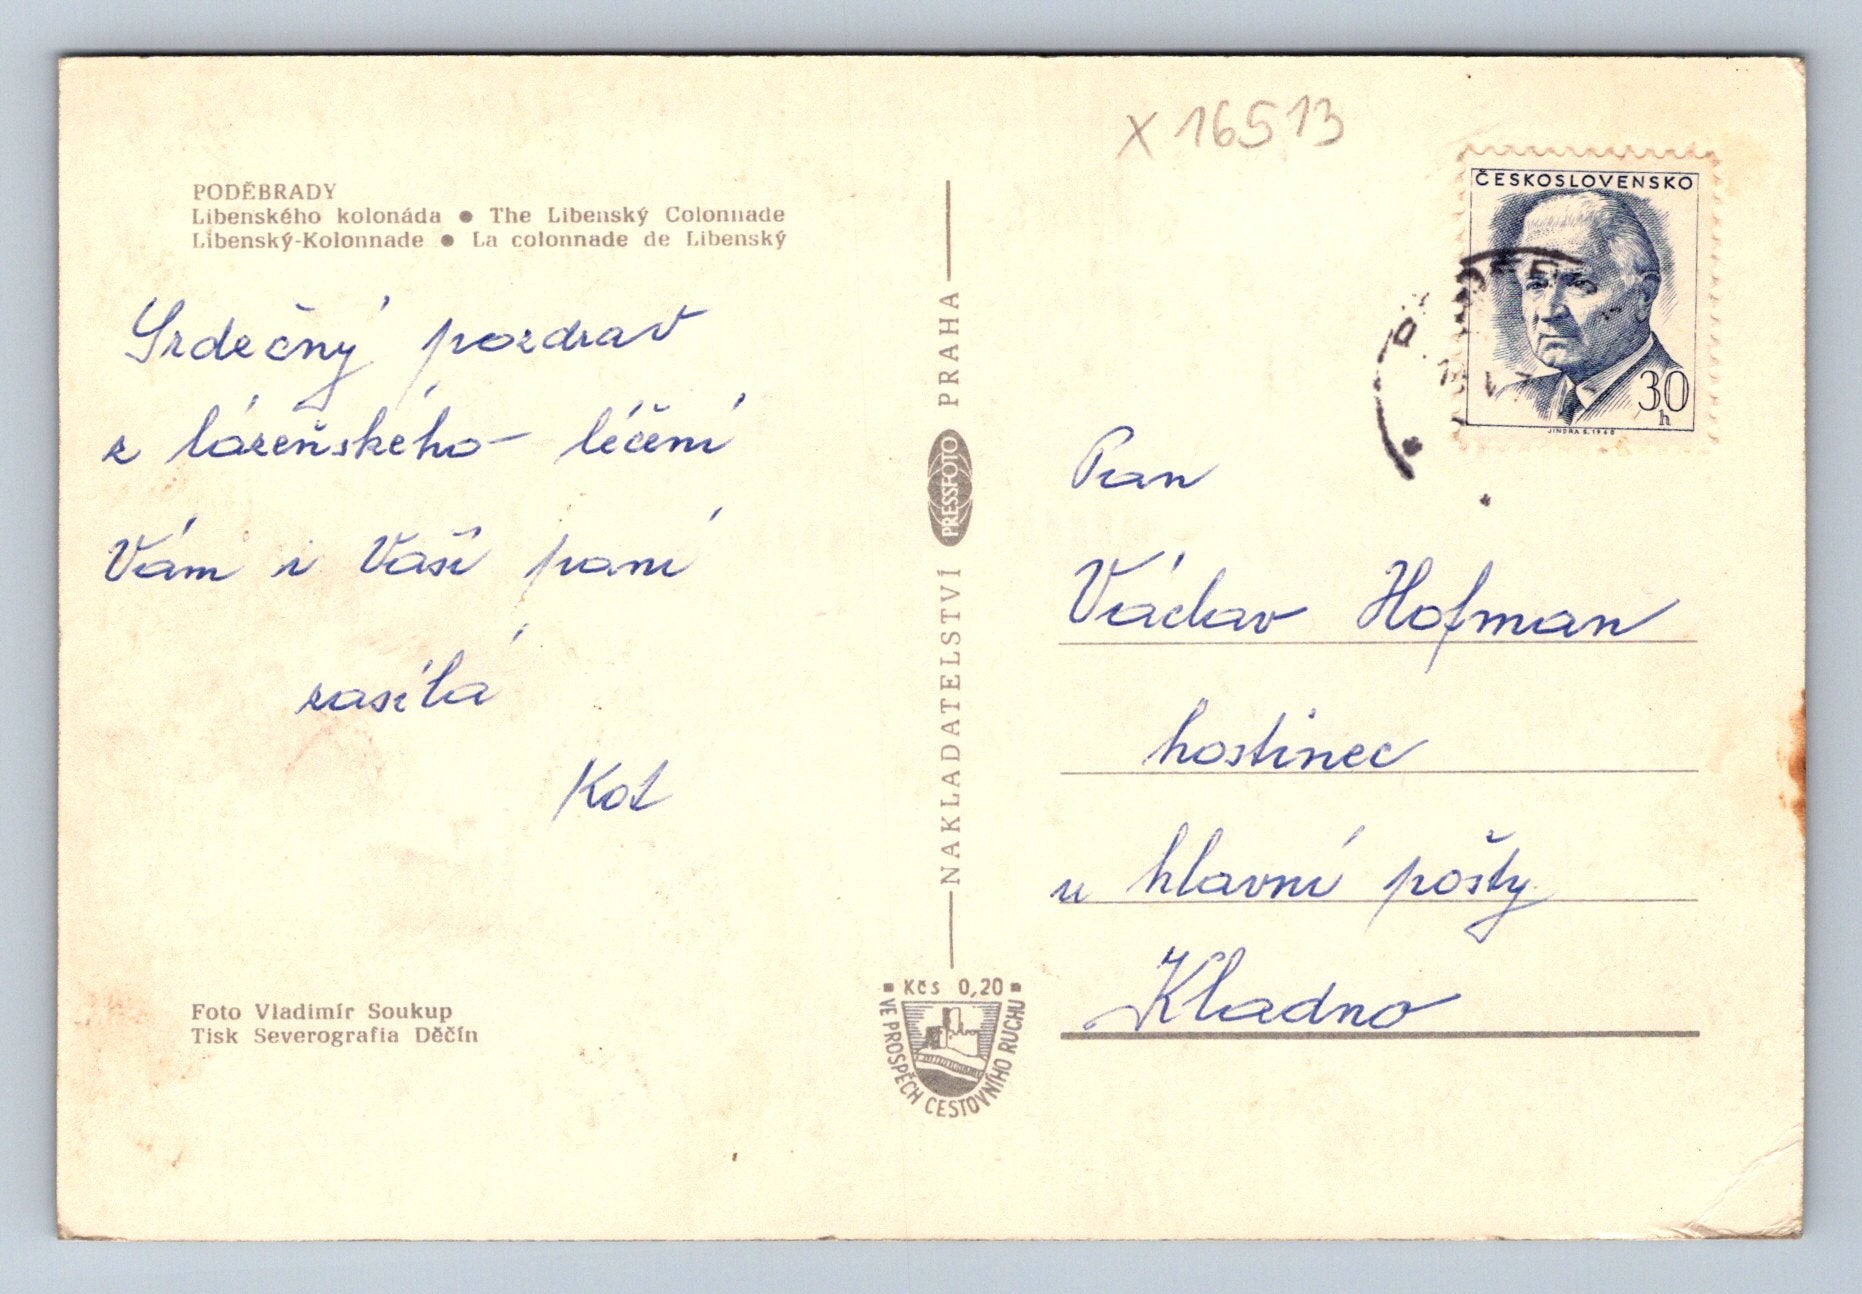 X 16513
PODĚBRADY
Libenského kolonáda ● The Libenský Colonnade
Libenský-Kolonnade ● La colonnade de Libenský
Srdečný pozdrav
z lázeňského léčení
Vám i Vaší paní
zasílá
Kot
Foto Vladimír Soukup
Tisk Severografia Děčín
NAKLADATELSTVÍ PRESSFOTO PRAHA
Kčs 0,20
VE PROSPĚCH CESTOVNÍHO RUCHU
ČESKOSLOVENSKO
30
h
JINDRA S. 1968
Pan
Václav Hofman
hostinec
u hlavní pošty
Kladno